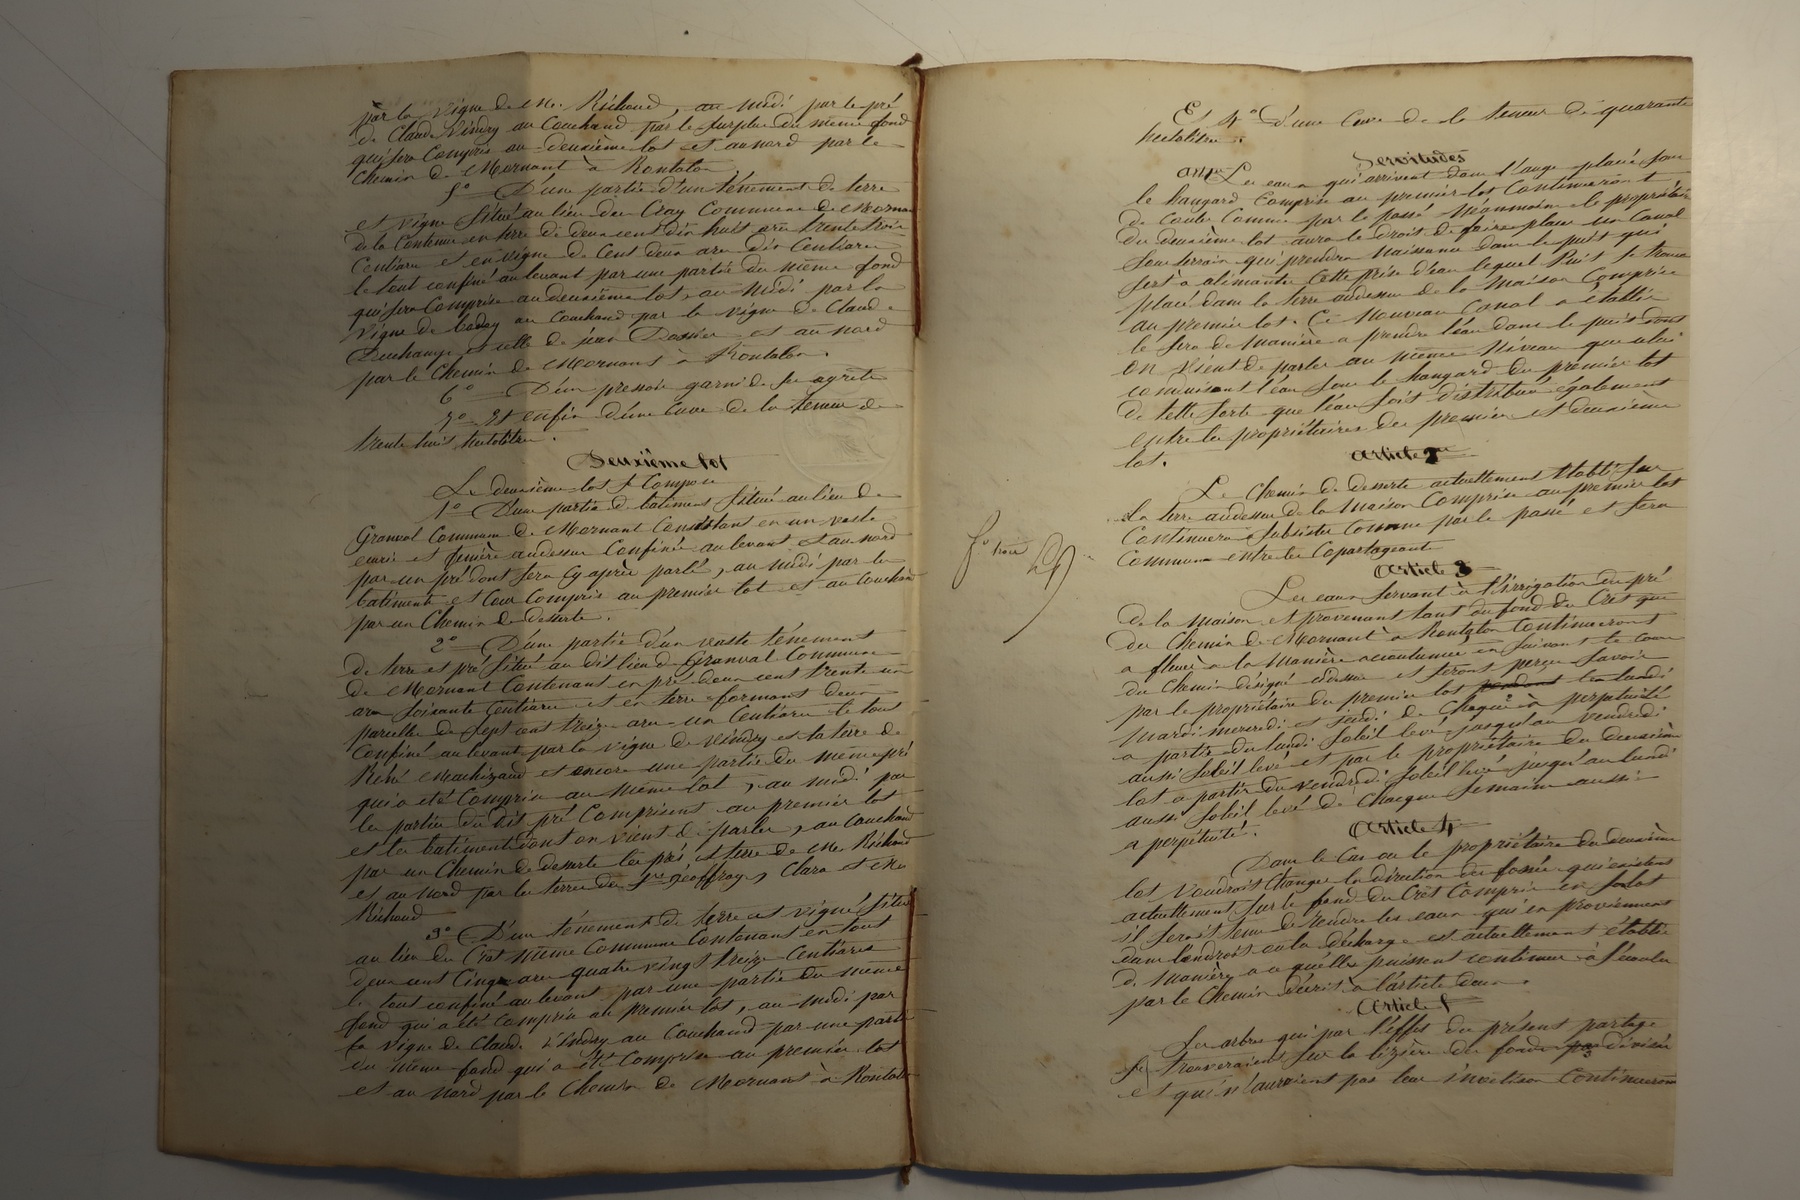 par la vigne de Mr. Richoud, au midi par le pré
de Claude Vindry au Couchand par le surplus du même fond
qui sera Compris au deuxième lot et au nord par le
Chemin de Mornant à Rontalon.
5° D'une partie d'un ténement de terre
et vigne situé au lieu du Commune de Mornant
de la Contenue en terre de deux cent dix huit ares trente trois
Centiares et en vigne de Cent deux ares dix Centiares
le tout confiné au levant par une partie du même fond
qui sera Comprise au deuxième lot, au Midi par la
Vigne de au Couchand par la vigne de Claude
et celle de jean et au nord
par le Chemin de Mornant à Rontalon.
6° D'un pressoir garni de ses agrêts
7° Et enfin d'une Cuve de la teneur de
trente huit hectolitres.
Deuxième lot
Le deuxième lot se Compose
1° D'une partie de batiment situé au lieu de
Granval Commune de Mornant Consistant en un vaste
écurie et fenière audessus Confinée au levant et au nord
par un pré dont sera Cy après parlé, au midi par les
batiments et Cour Compris au premier lot et au Couchand
par un Chemin de desserte.
2° D'une partie d'un vaste ténement
de terre et pré situé au dit lieu de Granval Commune
de Mornant Contenant en pré deux cent trente un
ares soixante Centiares et en terre formant deux
parcelles de sept cent treize ares un Centiare le tout
Confiné au levant par la vigne de Vindry et la terre de
René et encore une partie du même pré
qui a été Compris au même lot, au midi par
la partie du dit pré Comprisent au premier lot
et les batiments dont on vient de parler, au Couchand
par un Chemin de desserte les prés et terre de Mr. Richoud
et au nord par les terres de Geoffray, Clara et Mr.
Richoud
3° D'un ténement de terre et vigne situé
au lieu du Crêt même Commune Contenant en tout
deux cent Cinq ares quatre vingt treize Centiares
le tout confiné au levant par une partie du même
fond qui a été Comprise au premier lot, au midi par
la Vigne de Claude Vindry au Couchand par une partie
du même fond qui a été Comprise au premier lot
et au nord par le Chemin de Mornant à Rontalon
Et 4° D'une Cuve de la teneur de quarante
hectolitres.
Servitudes
Les eaux qui arrivent dans l'auge placé sous
le hangard Comprise au premier lot Continueront
de Couler Comme par le passé Néanmoins le propriétaire
du deuxième lot aura le droit de faire placer un Canal
souterrain qui prendra Naissance dans le puit qui
sert à alimenter Cette prise d'eau lequel Puit se trouve
placé dans la terre audessus de la Maison Comprise
au premier lot. Ce Nouveau Canal a établir
le sera de Manière à prendre l'eau dans le puit dont
on vient de parler au même Niveau que celui
conduisant l'eau sous le hangard du premier lot
de telle sorte que l'eau soit distribuée également
entre les propriétaires des premier et deuxième
lot.
Article 2
Le Chemin de desserte actuellement établi sur
La terre audessus de la Maison Comprise au premier lot
Continuera Subsister Comme par le passé et sera
Commun entre les Copartageants
Article 3
Les eaux servant à l'irrigation du pré
de la maison et provenant tant du fond du Crêt que
du Chemin de Mornant à Rontalon Continueront
a fluer à la Manière accoutumée en suivant le cour
du Chemin désigné et seront perçue Savoir
par le propriétaire du premier lot pendant les lundi
Mardi mercredi et jeudi de Chaque à perpétuité
a partir du lundi soleil levé jusqu'au Vendredi
aussi soleil levé et par le propriétaire du deuxième
lot a partir du vendredi soleil levé jusqu'au lundi
aussi soleil levé de Chaque semaine aussi
a perpétuité.
Article 4
Dans le Cas ou le propriétaire du deuxième
lot Voudrait Changer la direction des fossés qui existent
actuellement sur le fond du Crêt Compris en son lot
il serait tenu de rendre les eaux qui en proviennent
dans l'endroit ou la décharge est actuellement établie
de manière a ce qu'elles puissent continuer à s'écouler
par le Chemin décrit à l'article deux.
Article 5
Les arbres qui par l'effet du présent partage
se trouveraient sur la lizière des fonds divisés
et qui n'auraient pas leur Continueront